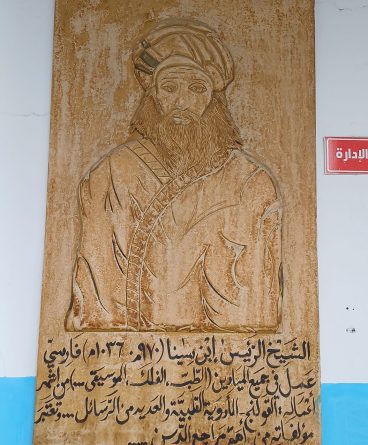 الإدارة
الشيخ الرئيس إبن سينا (٩٧٠م. ١٠٣٦م) فارسيّ
عمل في جميع الميادين (الطب، الفلك، الموسيقى ...) من أشهر
أعماله: القولنج، الأدوية القلبية والعديد من الرسائل .... وتعتبر
مؤلفاته من مراجع